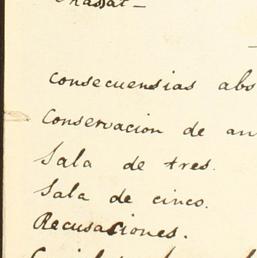 Chassat —
consecuensias abs
Conservacion de an
Sala de tres.
Sala de cinco.
Recusaciones.